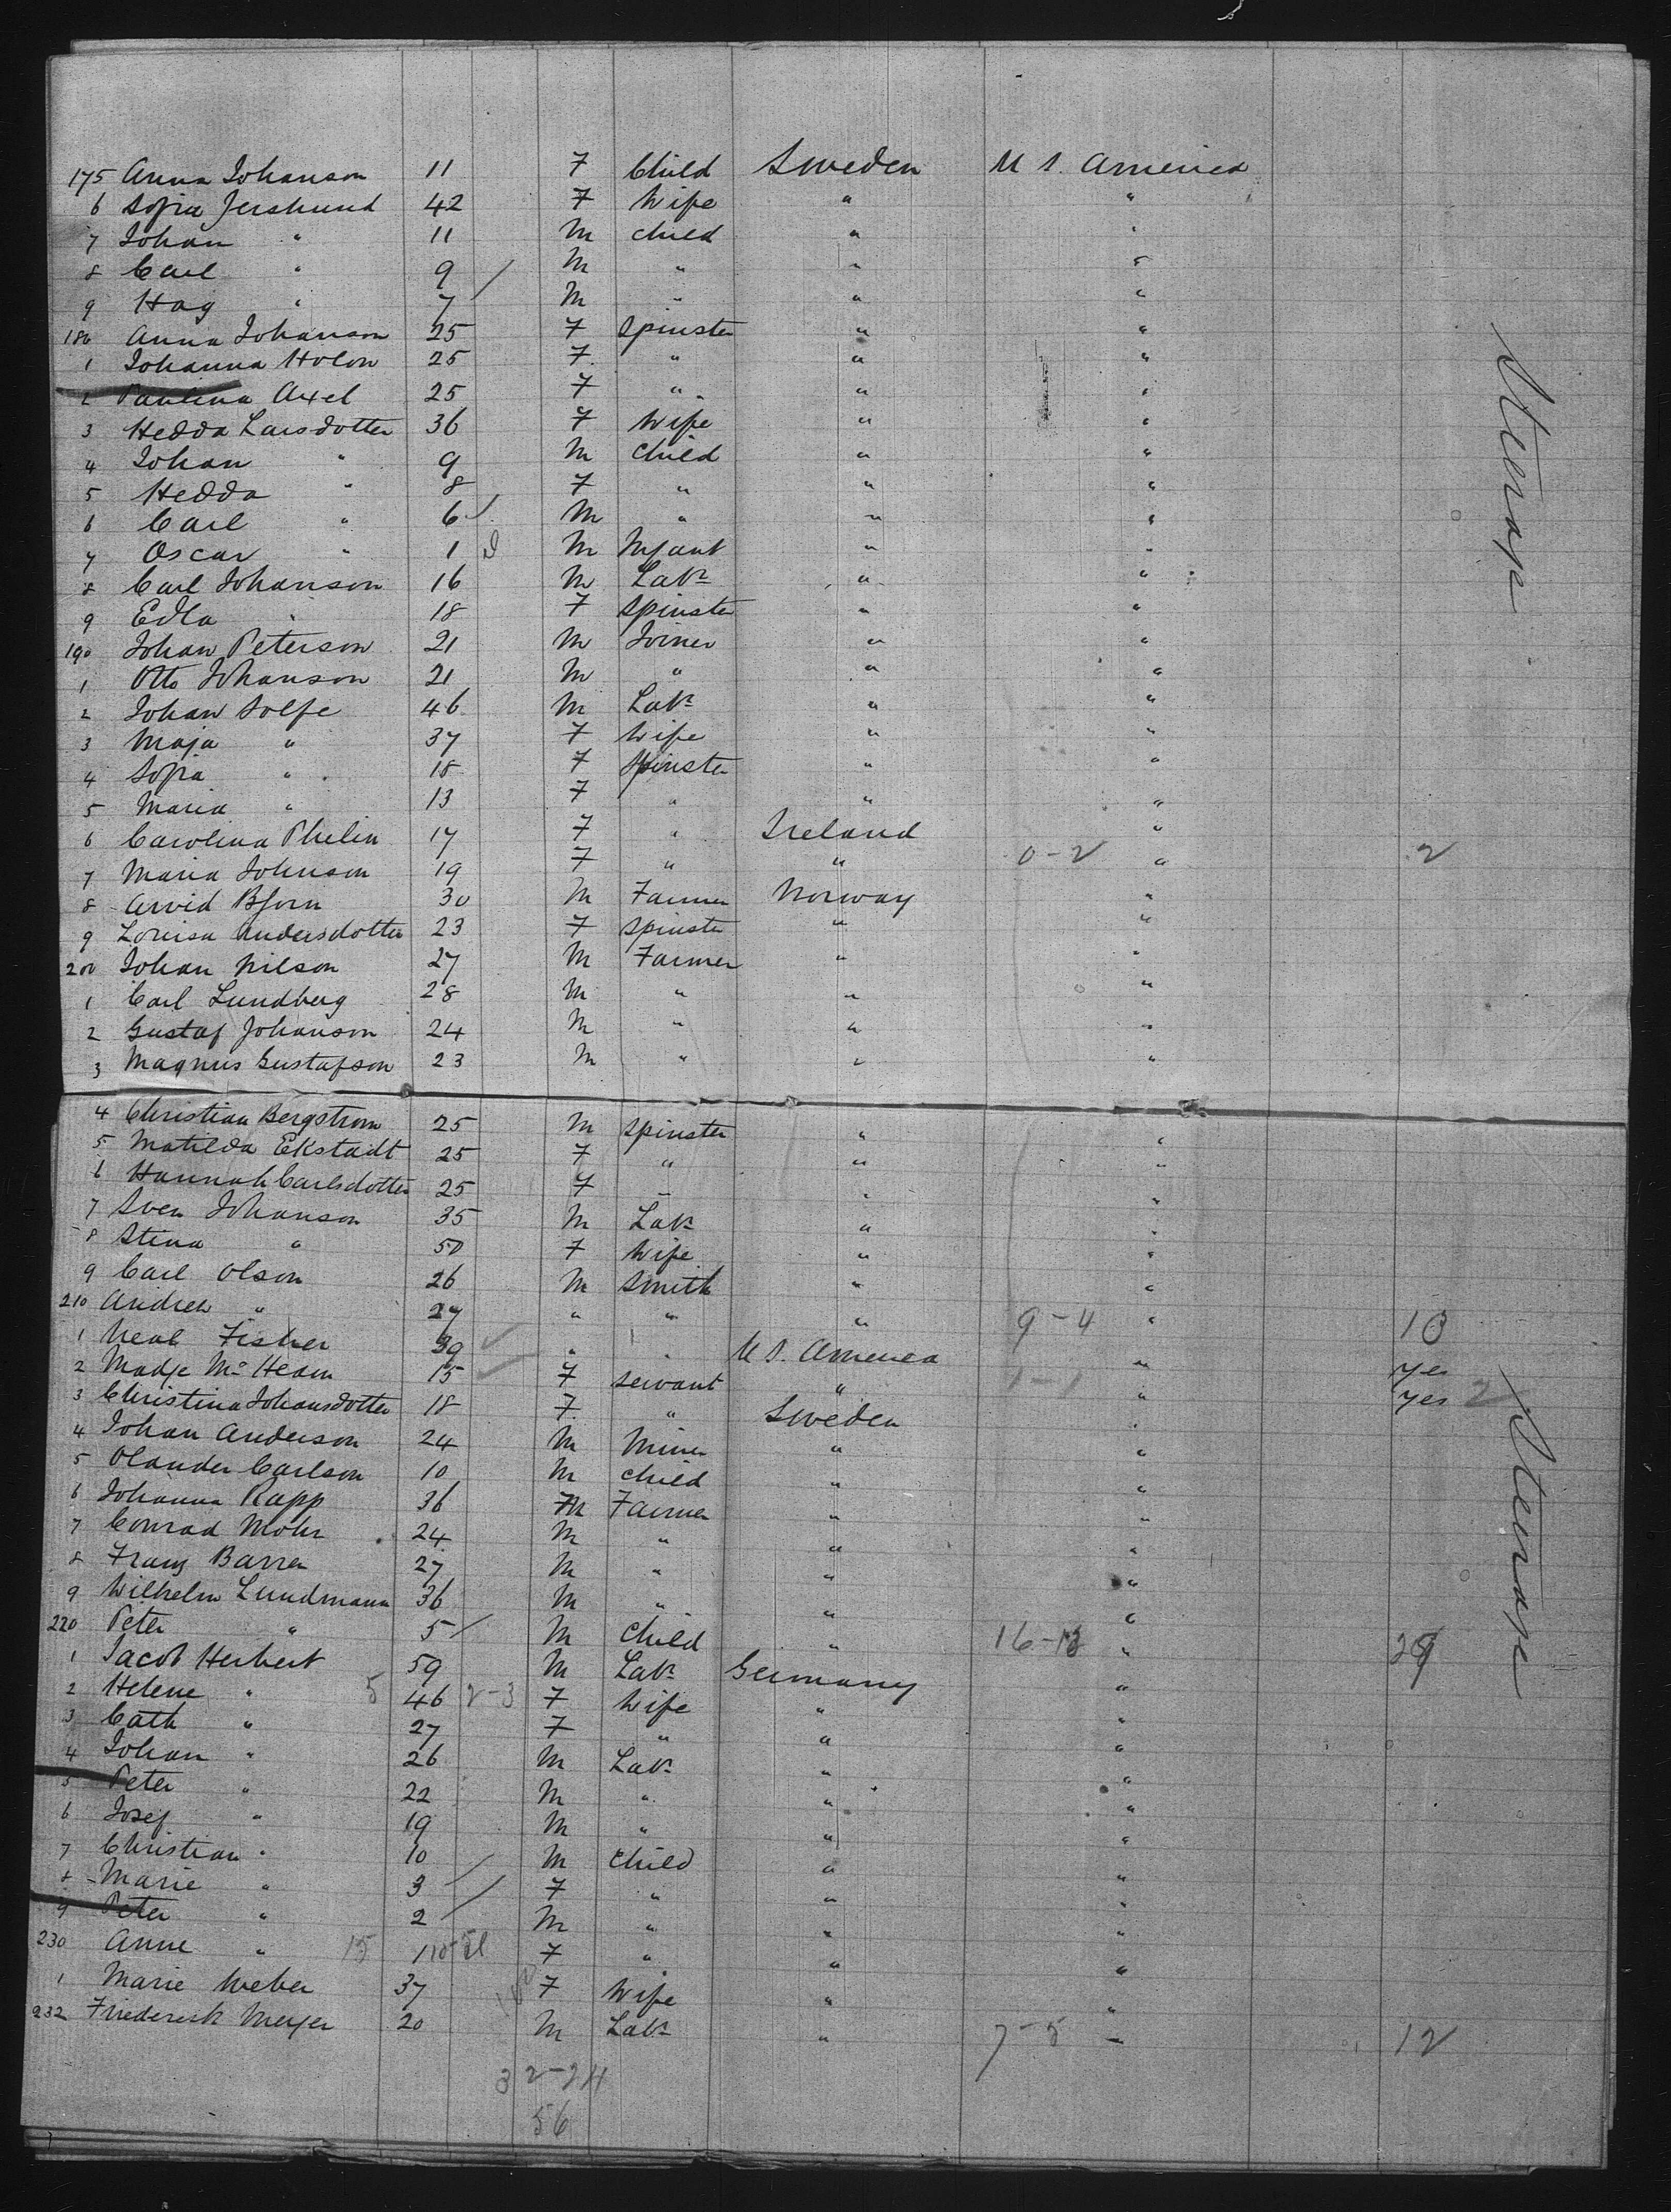 175 Anna Johanson 11 F Child Sweden U S. America
6 Sofia Jershund 42 F Wife " "
7 Johan " 11 M child " "
8 Carl " 9 / M " " "
9 Hag " 7 M " " "
180 Anna Johanson 25 F Spinster " "
1 Johanna Holon 25 F " " "
2 Paulina Axel 25 F " " "
3 Hedda Larsdotter 36 F Wife " "
4 Johan " 9 M Child " "
5 Hedda " 8 F " " "
6 Carl " 6 M " " "
7 Oscar " 1 M Infant " "
8 Carl Johanson 16 M Labr " "
9 Edla " 18 F Spinster " "
190 Johan Peterson 21 M Joiner " "
1 Otto Johanson 21 M " " "
2 Johan Solfe 46 M Labr " "
3 Maja " 37 F Wife " "
4 Sofia " 18 F Spinster " "
5 Maria " 13 F " " "
6 Carolina Phelin 17 F " Ireland "
7 Maria Johnson 19 F " " 0-2 " 2
8 Arvid Bjorn 30 M Farmer Norway "
9 Louisa Andersdotter 23 F Spinster " "
200 Johan Nilson 27 M Farmer " "
1 Carl Lundberg 28 M " " "
2 Gustaf Johanson 24 M " " "
3 Magnus Gustafson 23 M " " "
4 Christian Bergstrom 25 M Spinster " "
5 Matilda Ekstadt 25 F " " "
6 Hannah Carlsdotter 25 F " " "
7 Sven Johanson 35 M Labr " "
8 Stina " 50 F Wife " "
9 Carl Olson 26 M Smith " "
210 Andrew " 27 " " " 9-4 " 13
1 Neal Fisher 39 " " U S. America " yes
2 Madge Mc Hearn 15 F Servant " 1-1 " yes 2
3 Christina Johansdotter 18 F " Sweden "
4 Johan Anderson 24 M Miner " "
5 Olander Carlson 10 M child " "
6 Johanna Rapp 36 M Farmer " "
7 Conrad Mohr 24 M " " "
8 Franz Barren 27 M " " "
9 Wilhelm Lundmann 36 M " " "
220 Peter " 5 / M Child " 16-13 " 29
1 Jacob Herbert 59 M Labr Germany "
2 Helene " 5 46 2-3 F Wife " "
3 Cath " 27 F " " "
4 Johan " 26 M Labr " "
5 Peter " 22 M " " "
6 Josef " 19 M " " "
7 Christian " 10 M Child " "
8 Marie " 3 / F " " "
9 Peter " 2 / M " " "
230 Anne " 15 1 F " " "
1 Marie Weber 37 F Wife " "
232 Friederich Meyer 20 M Labr " 7-5 " 12
32-24
56
Steerage
Steerage